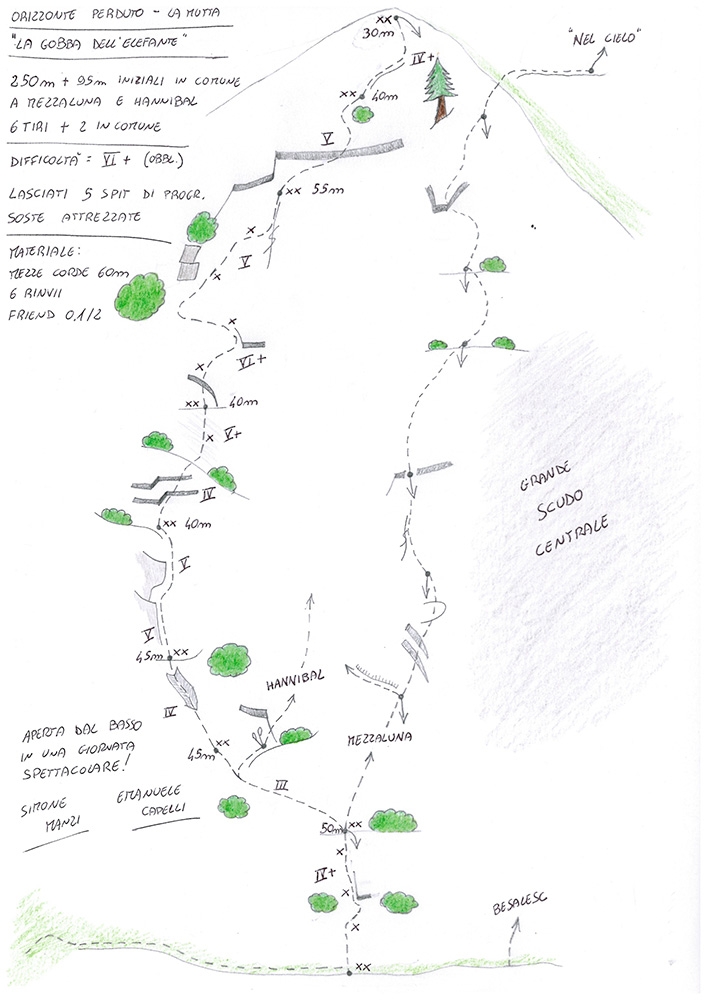 ORIZZONTE PERDUTO - LA MOTTA
"LA GOBBA DELL'ELEFANTE"
250m + 95m INIZIALI IN COMUNE
A MEZZALUNA E HANNIBAL
6 TIRI + 2 IN COMUNE
DIFFICOLTÀ = VI+ (OBBL.)
LASCIATI 5 SPIT DI PROGR.
SOSTE ATTREZZATE
MATERIALE:
MEZZE CORDE 60m
6 RINVII
FRIEND 0.1/2
xx
30m
IV+
"NEL CIELO"
xx 40m
V
xx 55m
x
V
x
x
VI+
x
xx 40m
x V+
IV
xx 40m
V
V
45m xx
IV
HANNIBAL
GRANDE
SCUDO
CENTRALE
APERTA DAL BASSO
IN UNA GIORNATA
SPETTACOLARE!
SIMONE
MANZI
EMANUELE
CAPELLI
xx
45m
MEZZALUNA
III
50m xx
x
IV+
x
x
BESALESC
xx